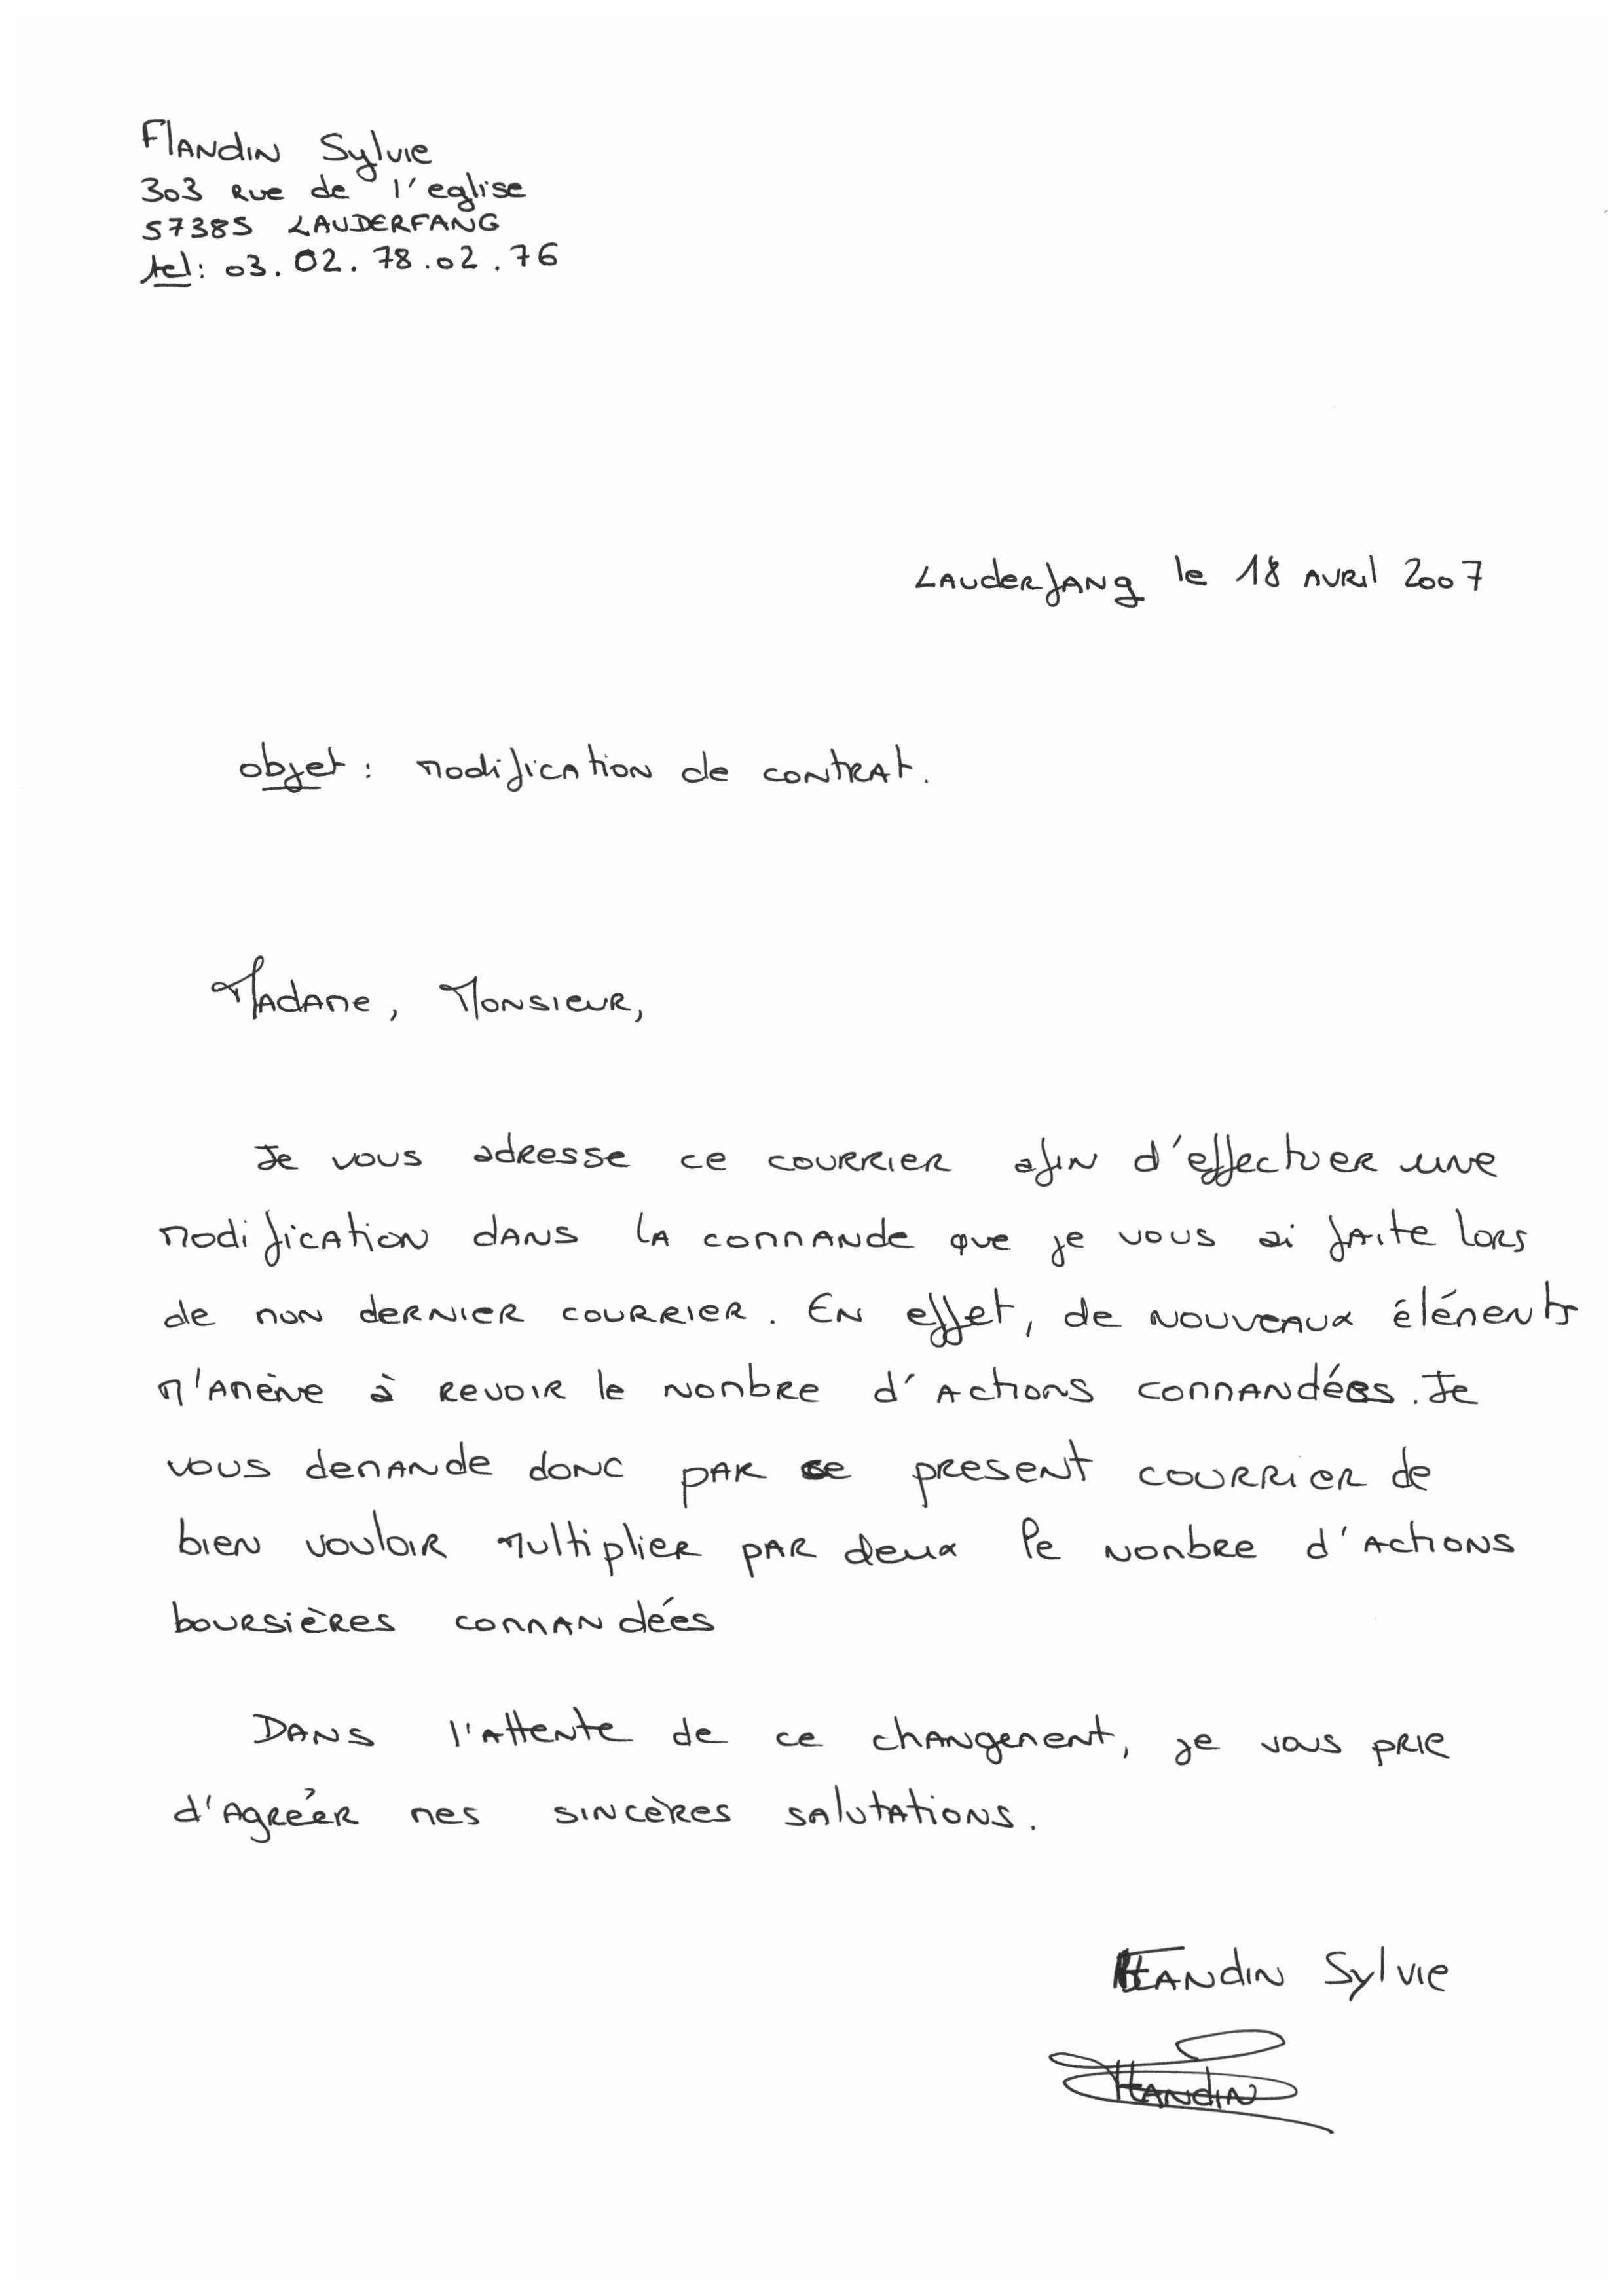 Flandin Sylvie
303 rue de l'eglise
57385 LAUDERFANG
tel: 03.02.78.02.76
Lauderfang le 18 avril 2007
objet : modification de contrat.
Madame, Monsieur,
Je vous adresse ce courrier afin d'effectuer une
modification dans la commande que je vous ai faite lors
de mon dernier courrier. En effet, de nouveaux éléments
m'amène à revoir le nombre d'actions commandées. Je
vous demande donc par ce present courrier de
bien vouloir multiplier par deux le nombre d'actions
boursières commandées
Dans l'attente de ce changement, je vous prie
d'agréer mes sincères salutations.
Flandin Sylvie
Flandin